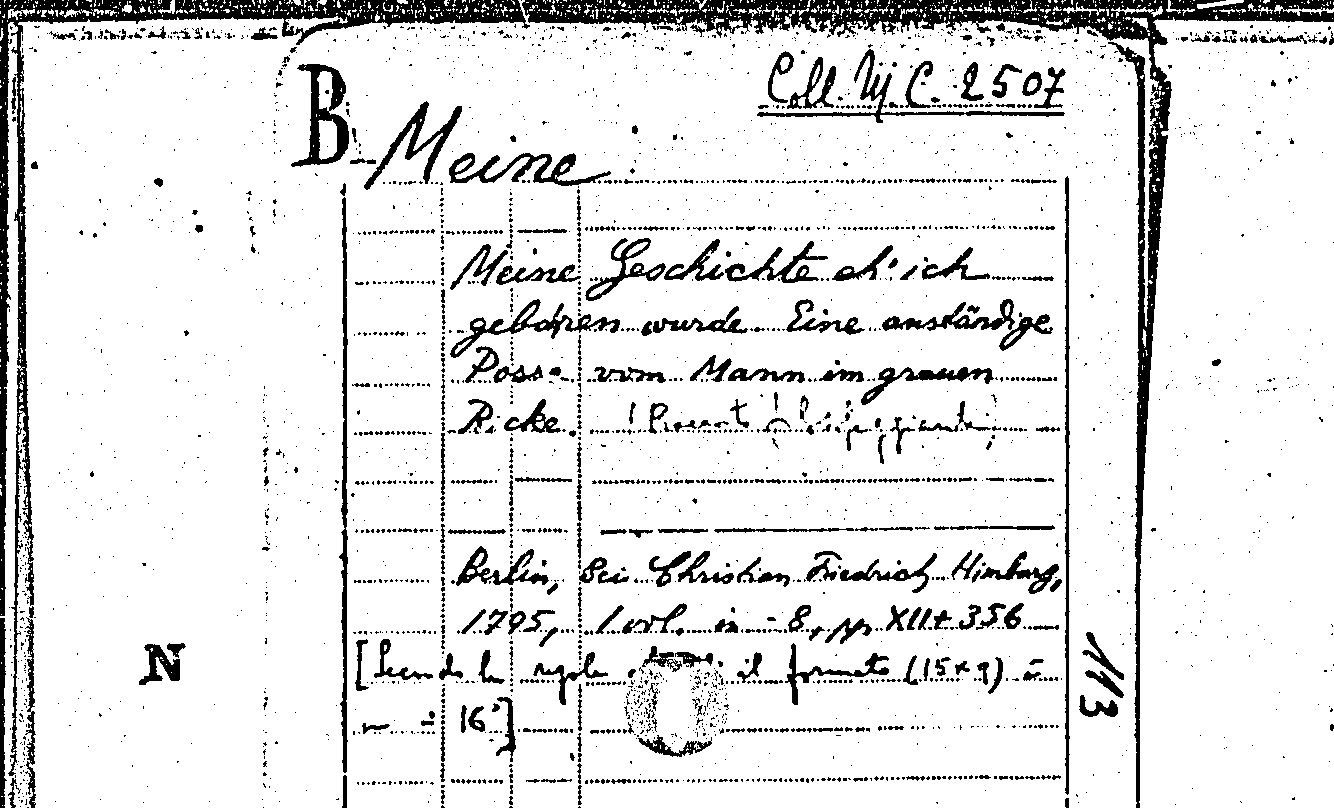 Coll. M. C. 2507
B
Meine
Meine Geschichte eh' ich
geboren wurde. Eine anständige
Posse vom Mann im grauen
Rocke.
Berlin, bei Christian Friedrich Himburg,
1795, 1 vol. in - 8, pp XII + 356
[Secondo le regole il formato (15 x 9) è
in 16°]
N
113